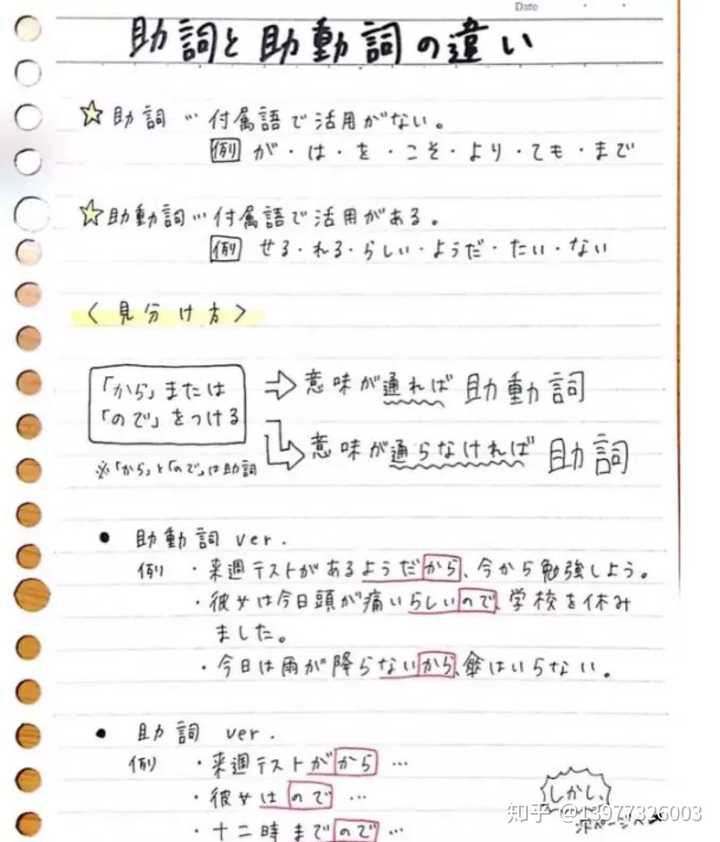 Date
助詞と助動詞の違い
☆助詞…付属語で活用がない。
例 が・は・を・こそ・より・ても・まで
☆助動詞…付属語で活用がある。
例 せる・れる・らしい・ようだ・たい・ない
〈見分け方〉
「から」または
「ので」をつける
⇒意味が通れば助動詞
意味が通らなければ助詞
※「から」と「ので」は助詞
● 助動詞 ver.
例 ・来週テストがあるようだから、今から勉強しよう。
・彼女は今日頭が痛いらしいので、学校を休み
ました。
・今日は雨が降らないから、傘はいらない。
● 助詞 ver.
例 ・来週テストがから…
・彼女はので…
・十二時までので…
しかし、
次ページへ
知乎 @13977326003